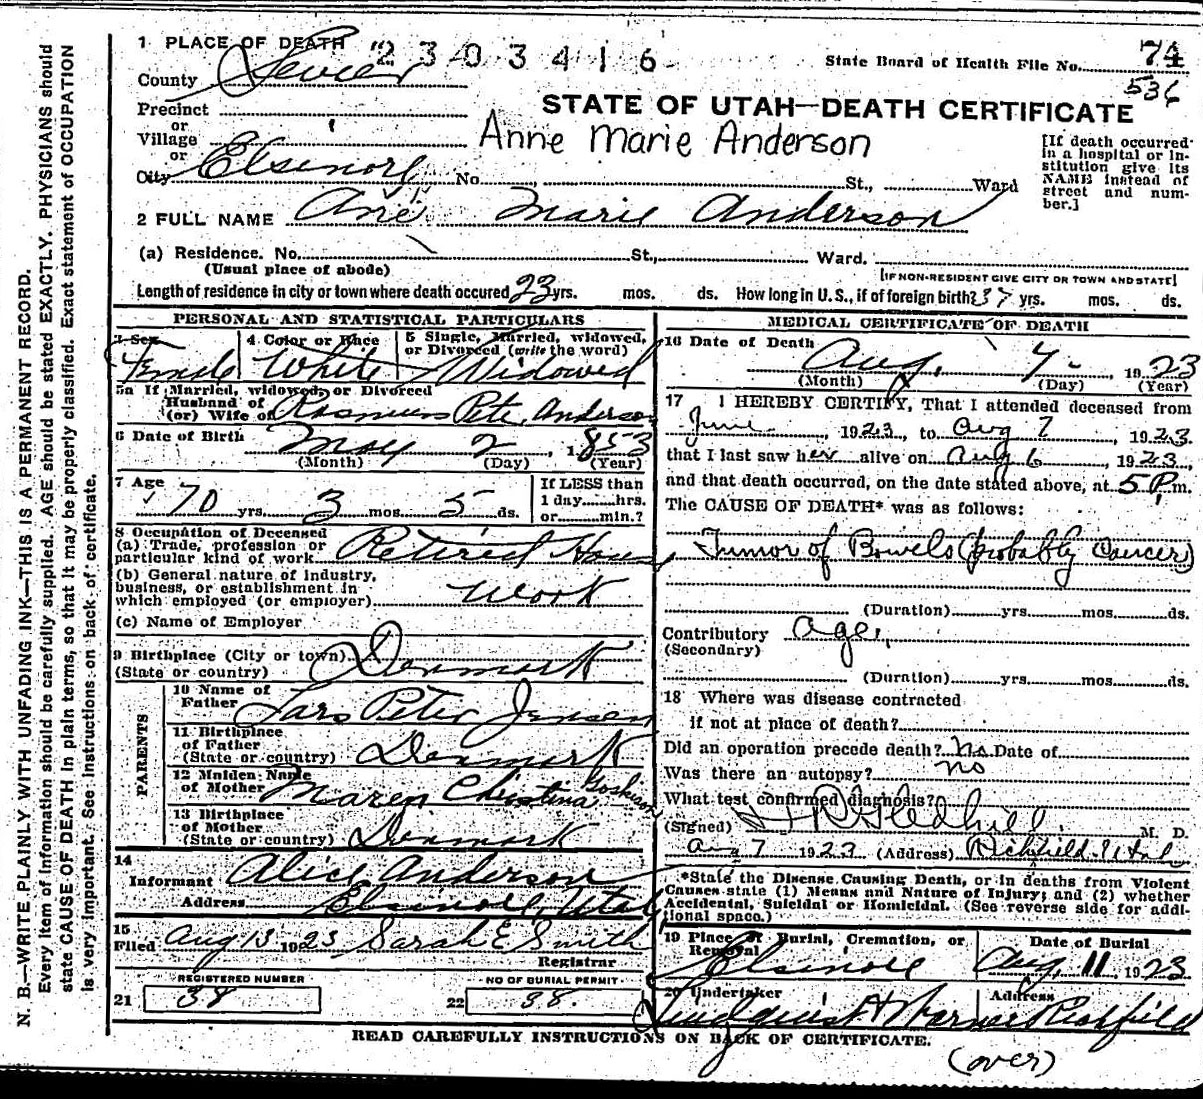 1 PLACE OF DEATH 2303416
State Board of Health File No. 74
County Sevier
536
Precinct
STATE OF UTAH—DEATH CERTIFICATE
or
Village
Anne Marie Anderson
or
City Elsinore No. St., Ward
[If death occurred in a hospital or institution give its NAME instead of street and number.]
2 FULL NAME Ane Marie Anderson
(a) Residence. No. St., Ward.
(Usual place of abode) [IF NON-RESIDENT GIVE CITY OR TOWN AND STATE]
Length of residence in city or town where death occured 23 yrs. mos. ds. How long in U. S., if of foreign birth? 37 yrs. mos. ds.
PERSONAL AND STATISTICAL PARTICULARS
3 Sex 4 Color or Race 5 Single, Married, widowed, or Divorced (write the word)
Female White Widowed
5a If Married, widowed, or Divorced
Husband of
(or) Wife of Rasmus Peter Anderson
6 Date of Birth May 2, 1853
(Month) (Day) (Year)
7 Age 70 yrs. 3 mos. 5 ds.
If LESS than
1 day hrs.
or min.?
8 Occupation of Deceased
(a) Trade, profession or
particular kind of work Retired House
(b) General nature of industry,
business, or establishment in
which employed (or employer) work
(c) Name of Employer
9 Birthplace (City or town)
(State or country) Denmark
PARENTS
10 Name of
Father Lars Peter Jensen
11 Birthplace
of Father
(State or country) Denmark
12 Maiden Name
of Mother Maren Christina
13 Birthplace
of Mother
(State or country) Denmark
14
Informant Alice Anderson
Address Elsinore, Utah
15
Filed Aug 13 1923 Sarah E Smith
Registrar
REGISTERED NUMBER NO OF BURIAL PERMIT
21 38 22 38.
MEDICAL CERTIFICATE OF DEATH
16 Date of Death Aug. 7- 1923
(Month) (Day) (Year)
17 I HEREBY CERTIFY, That I attended deceased from
June, 1923, to Aug 7, 1923.
that I last saw her alive on Aug 6, 1923,
and that death occurred, on the date stated above, at 5 P.m.
The CAUSE OF DEATH* was as follows:
Tumor of Bowels (probably Cancer)
(Duration) yrs. mos. ds.
Contributory Age,
(Secondary)
(Duration) yrs. mos. ds.
18 Where was disease contracted
if not at place of death?
Did an operation precede death? No Date of
Was there an autopsy? no
What test confirmed diagnosis?
(Signed) H R Gledhill, M. D.
Aug 7 1923 (Address) Richfield, Utah
*State the Disease Causing Death, or in deaths from Violent
Causes state (1) Means and Nature of Injury; and (2) whether
Accidental, Suicidal or Homicidal. (See reverse side for additional space.)
19 Place of Burial, Cremation, or Removal Date of Burial
Elsinore Aug. 11 1923
20 Undertaker Address
Richfield
READ CAREFULLY INSTRUCTIONS ON BACK OF CERTIFICATE.
(over)
N. B.—WRITE PLAINLY WITH UNFADING INK—THIS IS A PERMANENT RECORD.
Every item of information should be carefully supplied. AGE should be stated EXACTLY. PHYSICIANS should
state CAUSE OF DEATH in plain terms, so that it may be properly classified. Exact statement of OCCUPATION
is very important. See instructions on back of certificate.